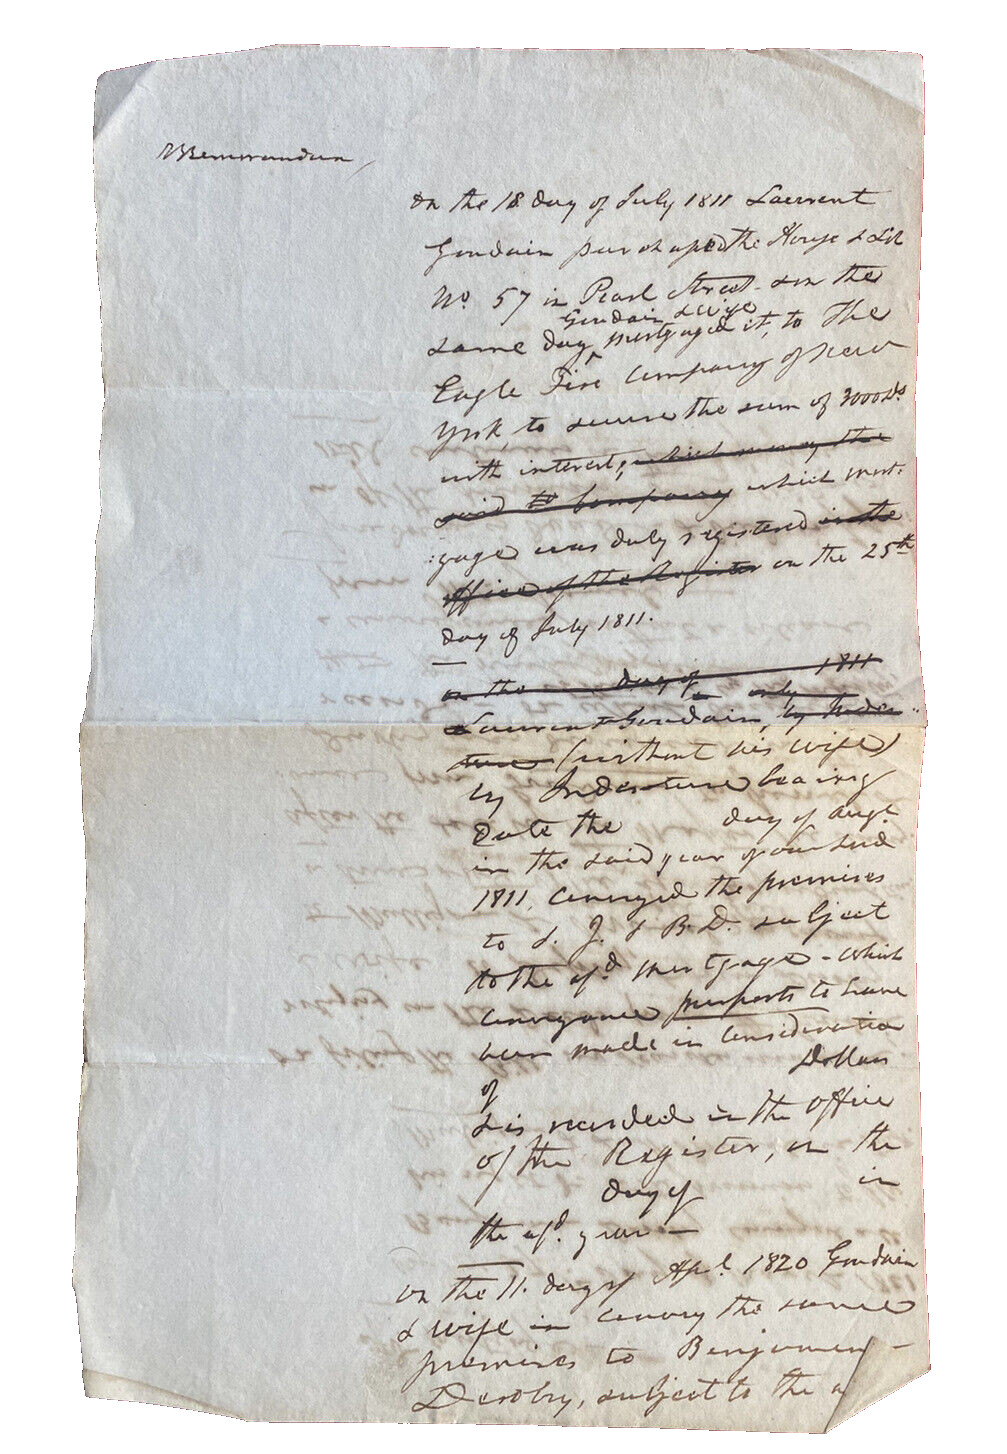 Memorandum
On the 18 day of July 1811 Laurent
Goudain purchased the House & Lot
No. 57 in Pearl Street - & on the
Goudain & Wife
same day mortgaged it, to The
Eagle Fire Company of New
York, to secure the sum of 3000 Ds
with interest, which money the
said to Company which mort:
:gage was duly registered in the
office of the Register on the 25th
day of July 1811.
on the day of 1811
Laurent Goudain, only by Inden
ture (without his wife)
by Indenture bearing
Date the day of Augt
in the said year of our Lord
1811, conveyed the premises
to L. J. & B. D. subject
to the afd. mortgage - which
conveyance purports to have
been made in consideration
of Dollars
& is recorded in the office
of the Register, on the
day of in
the afd. year —
On the 11. day of Apl. 1820 Goudain
& wife in convey the same
premises to Benjamin -
Desobry, subject to the a